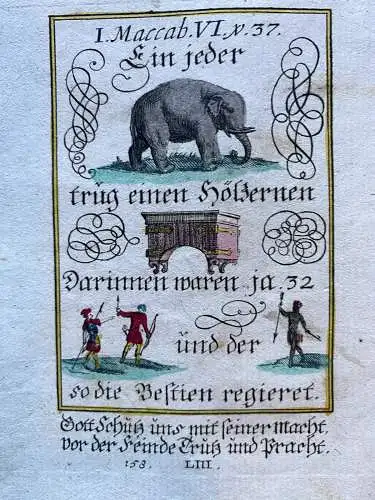 I. Maccab. VI. v. 37.
Ein jeder
trüg einen Höltzernen
Darinnen waren ja. 32
ünd der
so die Bestien regieret.
Gott Schütz üns mit seiner macht,
vor der Feinde Trutz und Pracht.
158. LIII.